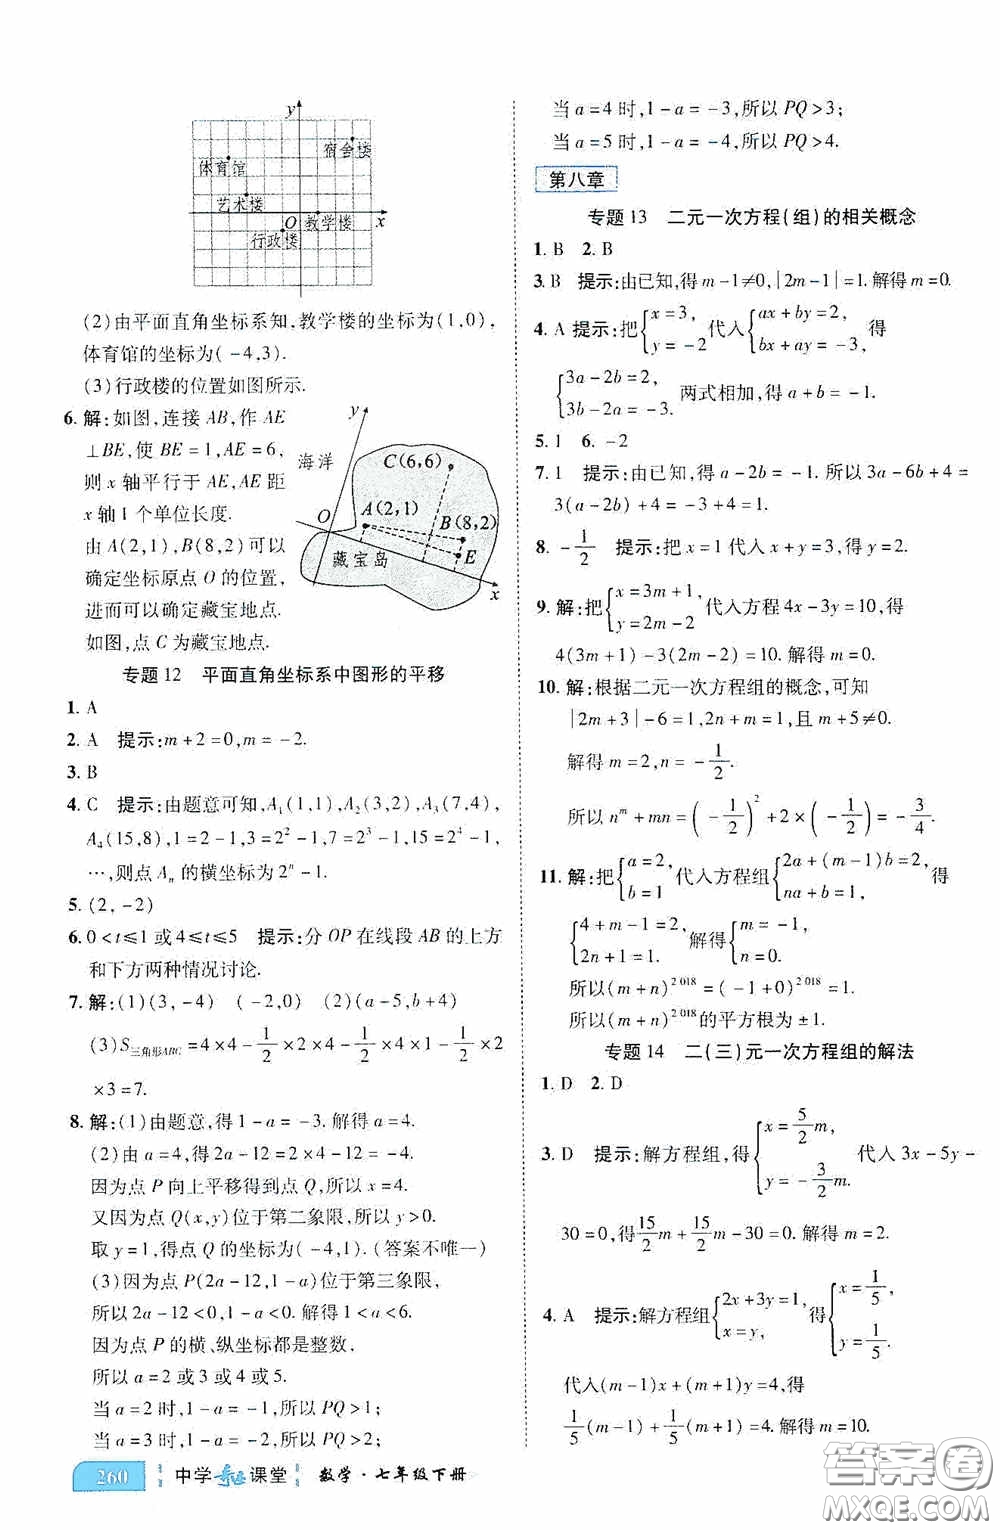 y
宿舍楼
体育馆
艺术楼
O 教学楼 x
行政楼
(2)由平面直角坐标系知,教学楼的坐标为(1,0),
体育馆的坐标为(-4,3).
(3)行政楼的位置如图所示.
6. 解:如图,连接 AB,作 AE
⊥BE,使 BE=1,AE=6,
则 x 轴平行于 AE,AE 距
x 轴 1 个单位长度.
由 A(2,1),B(8,2)可以
确定坐标原点 O 的位置,
进而可以确定藏宝地点.
如图,点 C 为藏宝地点.
y
海洋
C(6,6)
A(2,1)
O
B(8,2)
E
藏宝岛
x
专题 12 平面直角坐标系中图形的平移
1. A
2. A 提示:m+2=0,m=-2.
3. B
4. C 提示:由题意可知,A₁(1,1),A₂(3,2),A₃(7,4),
A₄(15,8),1=2-1,3=2²-1,7=2³-1,15=2⁴-1,
…,则点 Aₙ 的横坐标为 2ⁿ-1.
5. (2,-2)
6. 0<t≤1 或 4≤t≤5 提示:分 OP 在线段 AB 的上方
和下方两种情况讨论.
7. 解:(1)(3,-4) (-2,0) (2)(a-5,b+4)
(3)S三角形ABC=4×4-1/2×2×4-1/2×1×4-1/2×2
×3=7.
8. 解:(1)由题意,得 1-a=-3. 解得 a=4.
(2)由 a=4,得 2a-12=2×4-12=-4.
因为点 P 向上平移得到点 Q,所以 x=4.
又因为点 Q(x,y)位于第二象限,所以 y>0.
取 y=1,得点 Q 的坐标为(-4,1). (答案不唯一)
(3)因为点 P(2a-12,1-a)位于第三象限,
所以 2a-12<0,1-a<0. 解得 1<a<6.
因为点 P 的横、纵坐标都是整数,
所以 a=2 或 3 或 4 或 5.
当 a=2 时,1-a=-1,所以 PQ>1;
当 a=3 时,1-a=-2,所以 PQ>2;
当 a=4 时,1-a=-3,所以 PQ>3;
当 a=5 时,1-a=-4,所以 PQ>4.
第八章
专题 13 二元一次方程(组)的相关概念
1. B 2. B
3. B 提示:由已知,得 m-1≠0,|2m-1|=1. 解得 m=0.
4. A 提示:把{x=3, y=-2 代入{ax+by=2, bx+ay=-3, 得
{3a-2b=2, 3b-2a=-3. 两式相加,得 a+b=-1.
5. 1 6. -2
7. 1 提示:由已知,得 a-2b=-1. 所以 3a-6b+4=
3(a-2b)+4=-3+4=1.
8. -1/2 提示:把 x=1 代入 x+y=3,解得 y=2.
9. 解:把{x=3m+1, y=2m-2 代入方程 4x-3y=10,得
4(3m+1)-3(2m-2)=10. 解得 m=0.
10. 解:根据二元一次方程组的概念,可知
|2m+3|-6=1,2n+m=1,且 m+5≠0.
解得 m=2,n=-1/2.
所以 nᵐ+mn=(-1/2)²+2×(-1/2)=-3/4.
11. 解:把{a=2, b=1 代入方程组{2a+(m-1)b=2, na+b=1, 得
{4+m-1=2, 2n+1=1. 解得{m=-1, n=0.
所以(m+n)²⁰¹⁸=(-1+0)²⁰¹⁸=1.
所以(m+n)²⁰¹⁸的平方根为±1.
专题 14 二(三)元一次方程组的解法
1. D 2. D
3. D 提示:解方程组,得{x=5/2m, y=-3/2m. 代入 3x-5y-
30=0,得15/2m+15/2m-30=0. 解得 m=2.
4. A 提示:解方程组{2x+3y=1, x=y, 得{x=1/5, y=1/5.
代入(m-1)x+(m+1)y=4,得
1/5(m-1)+1/5(m+1)=4. 解得 m=10.
260 中学奇迹课堂 数学·七年级下册
答案圈
MXQE.COM